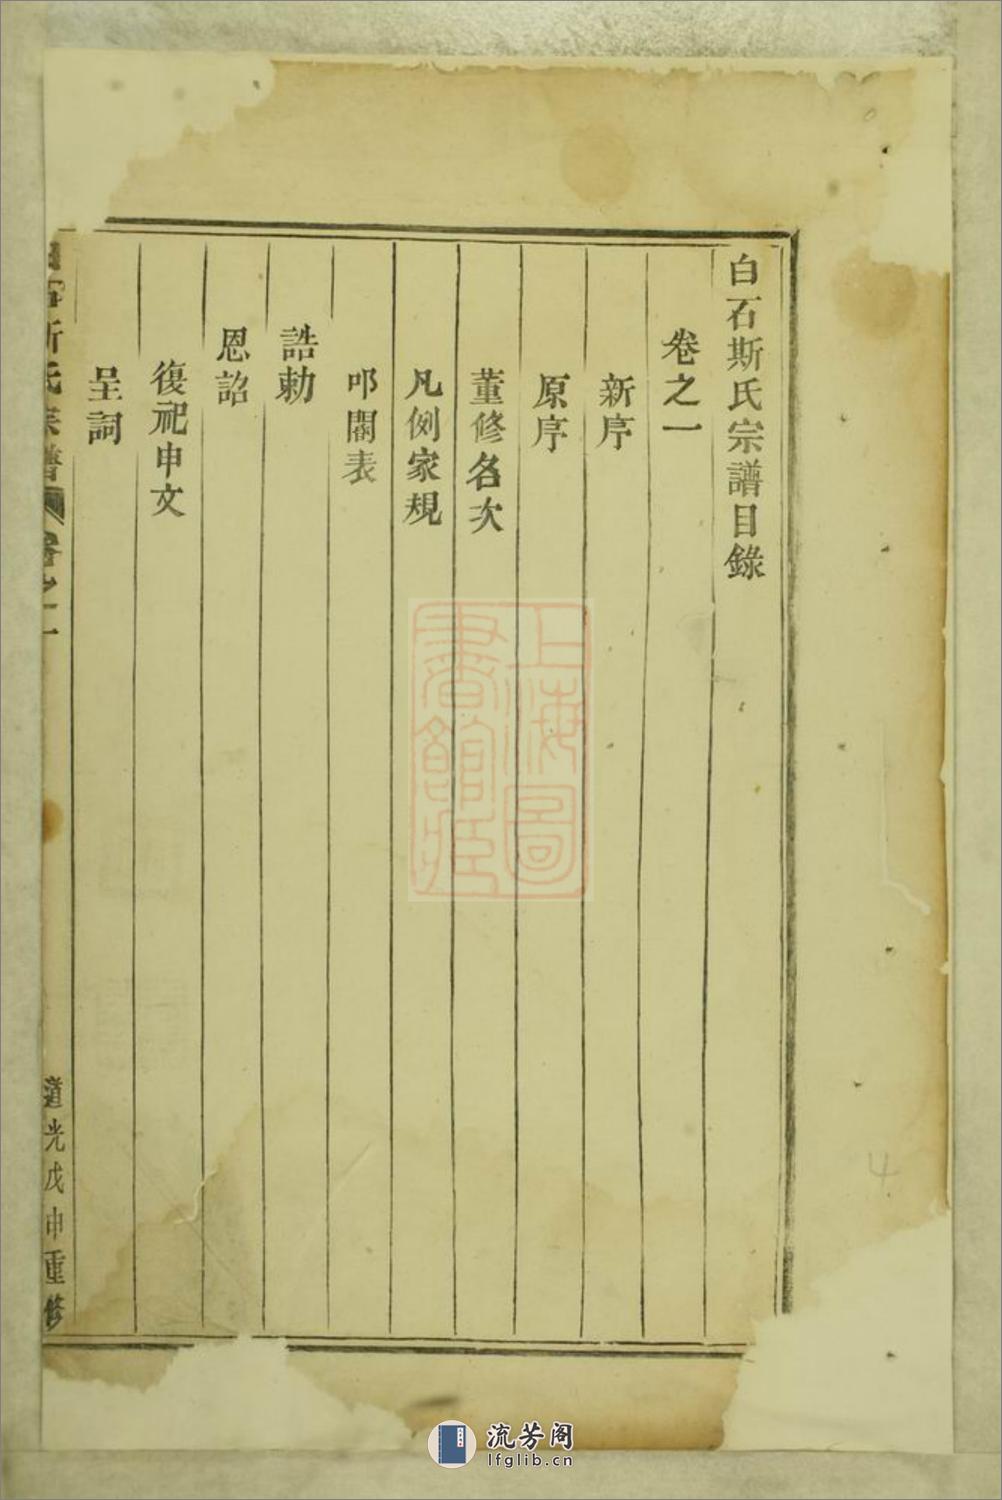 白石斯氏宗譜目錄
卷之一
新序
原序
董修名次
凡例家規
叩閽表
誥勅
恩詔
復祀申文
呈詞
白石斯氏宗譜 卷之一
道光戊申重修
上海圖
書館藏
流芳阁
lfglib.cn
4